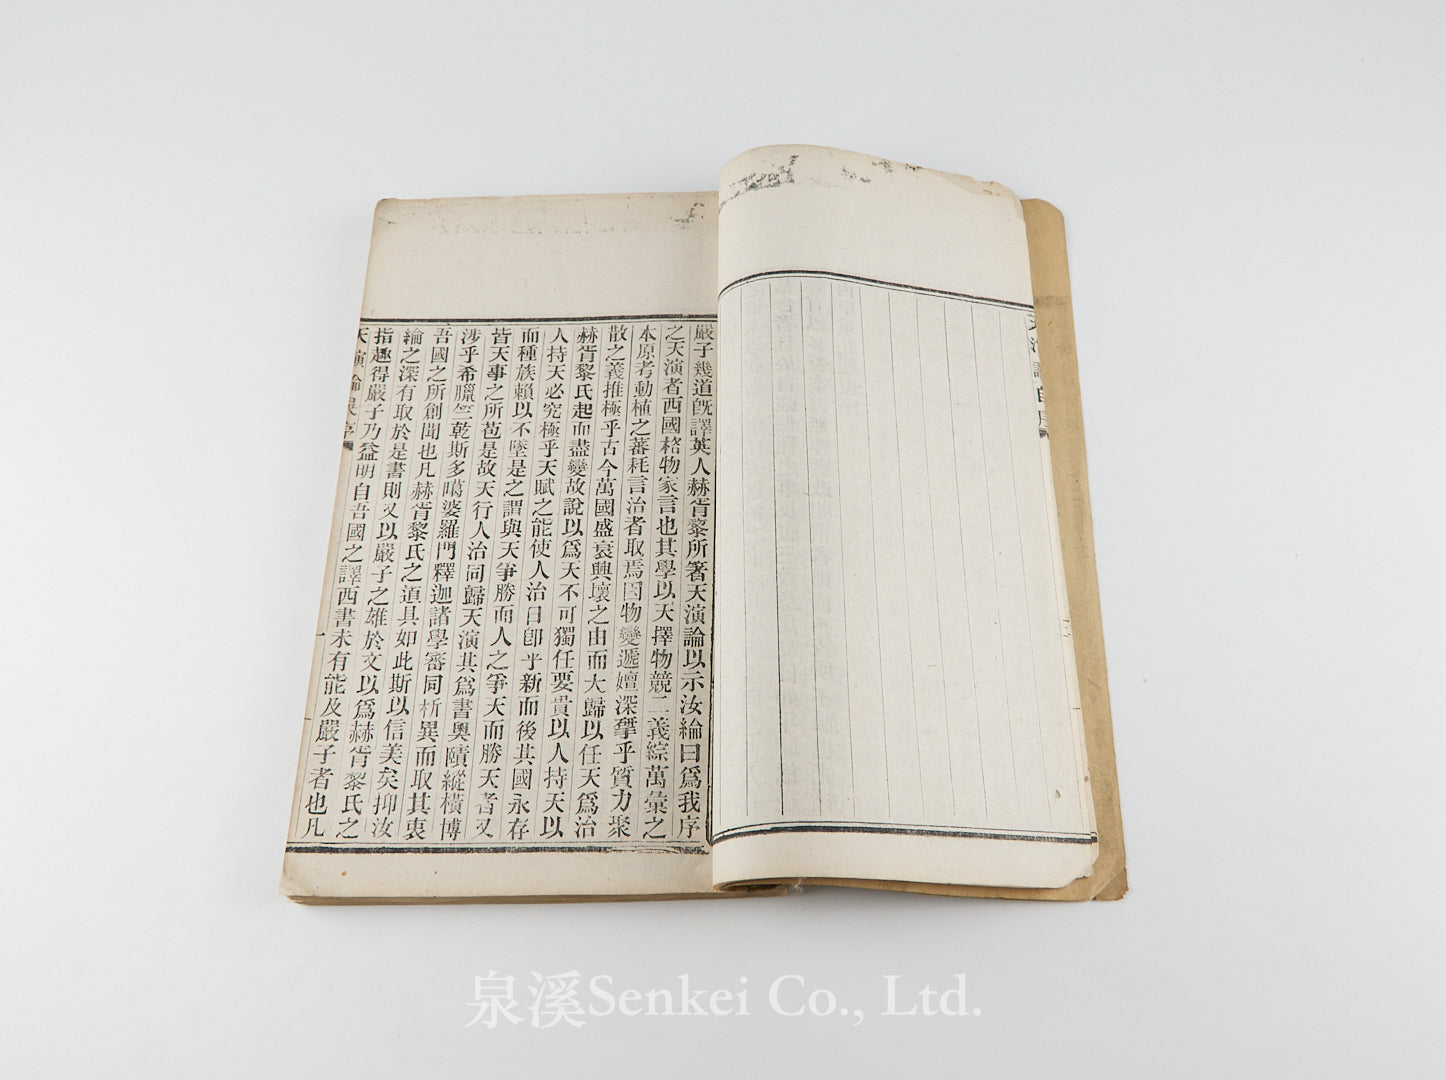 天演論自序
嚴子幾道既譯英人赫胥黎所箸天演論以示汝綸曰爲我序
之天演者西國格物家言也其學以天擇物競二義綜萬彙之
本原考動植之蕃耗言治者取焉因物變遞嬗深揅乎質力聚
散之義推極乎古今萬國盛衰興壞之由而大歸以任天爲治
赫胥黎氏起而盡變故說以爲天不可獨任要貴以人持天以
人持天必究極乎天賦之能使人治日卽乎新而後其國永存
而種族賴以不墜是之謂與天爭勝而人之爭天而勝天者又
皆天事之所苞是故天行人治同歸天演其爲書奧賾縱橫博
涉乎希臘竺乾斯多噶婆羅門釋迦諸學審同析異而取其衷
吾國之所創聞也凡赫胥黎氏之道具如此斯以信美矣抑汝
綸之深有取於是書則又以嚴子之雄於文以爲赫胥黎氏之
指趣得嚴子乃益明自吾國之譯西書未有能及嚴子者也凡
天演論吳序
泉溪Senkei Co., Ltd.